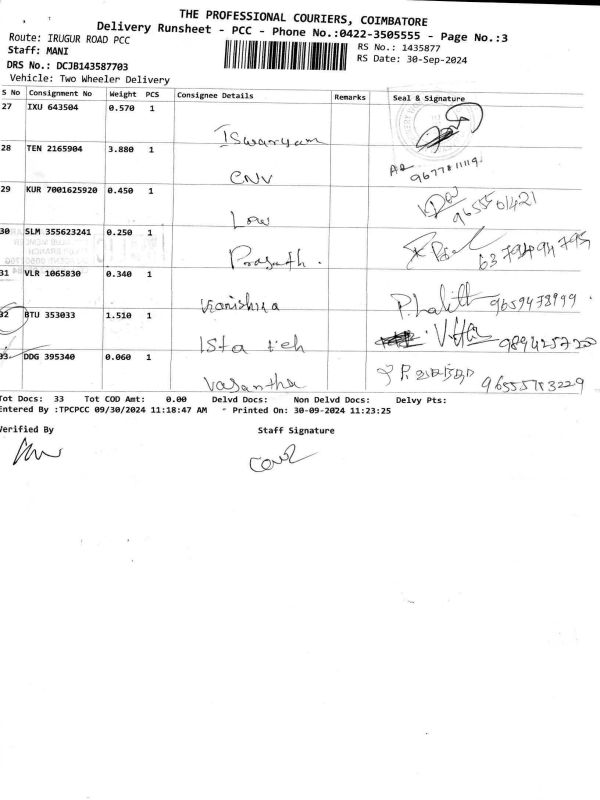 THE PROFESSIONAL COURIERS, COIMBATORE
Delivery Runsheet - PCC - Phone No.:0422-3505555 - Page No.:3
Route: IRUGUR ROAD PCC
RS No.: 1435877
Staff: MANI
RS Date: 30-Sep-2024
DRS No.: DCJB143587703
Vehicle: Two Wheeler Delivery
S No Consignment No Weight PCS Consignee Details Remarks Seal & Signature
27 IXU 643504 0.570 1 Iswaryam
28 TEN 2165904 3.880 1 CNV
29 KUR 7001625920 0.450 1 Low 9655501421
30 SLM 355623241 0.250 1 Prasath.
31 VLR 1065830 0.340 1 Kanishka P. Lalitt 9659478999.
32 BTU 353033 1.510 1 Ista
33 DDG 395340 0.060 1 Vasantha
Tot Docs: 33 Tot COD Amt: 0.00 Delvd Docs: Non Delvd Docs: Delvy Pts:
Entered By :TPCPCC 09/30/2024 11:18:47 AM - Printed On: 30-09-2024 11:23:25
Verified By Staff Signature